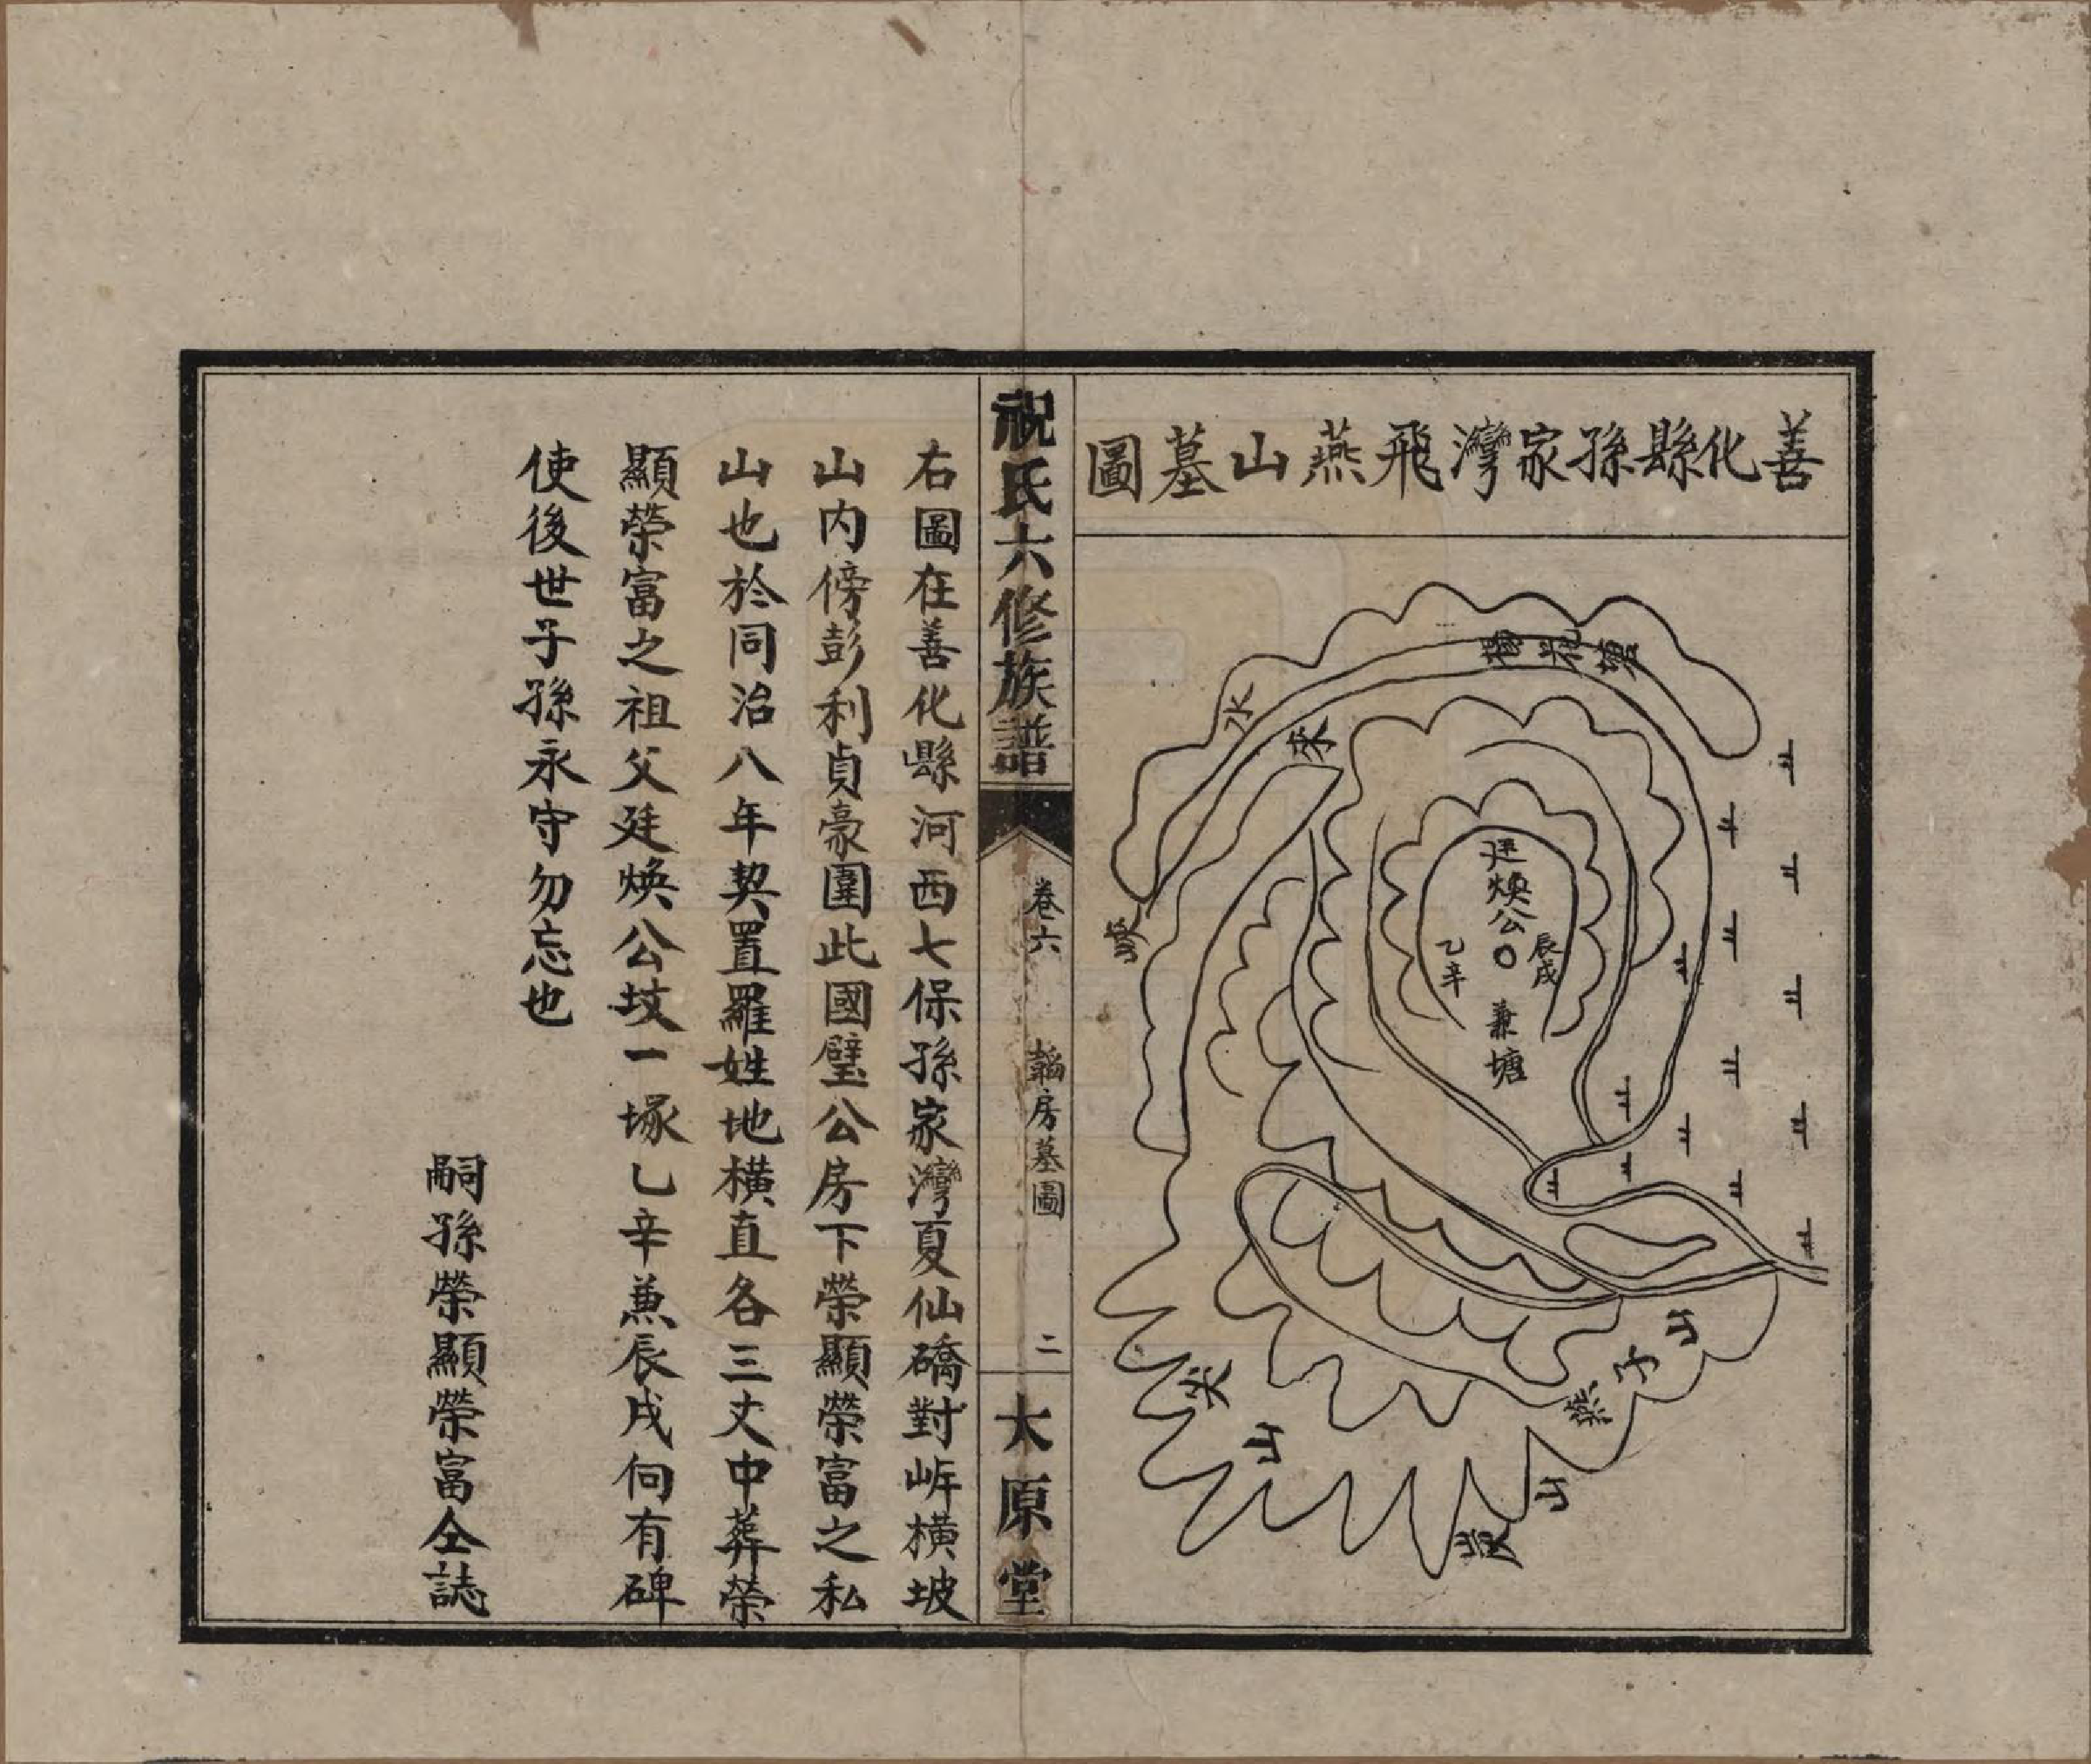 善化縣孫家灣飛燕山墓圖
廷煥公
辰戌
乙辛
兼塘
水
尖
山
燕子山
山
祝氏六修族譜
卷六
韜房墓圖
二
太原堂
右圖在善化縣河西七保孫家灣夏仙礄對岸橫坡
山内傍彭利貞豪圍此國璧公房下榮顯榮富之私
山也於同治八年契置羅姓地橫直各三丈中葬榮
顯榮富之祖父廷煥公坟一塚乚辛兼辰戌向有碑
使後世子孫永守勿忘也
嗣孫榮顯榮富仝誌